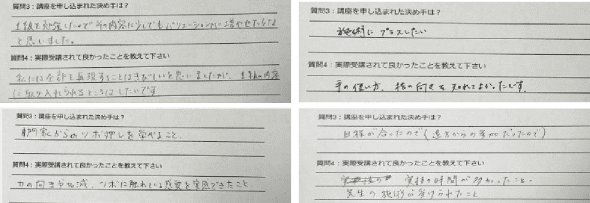 質問3：講座を申し込まれた決め手は？
を勉強したのでその内容に少しでもバリエーションに増やせたらな
と思いました。
質問4：実際受講されて良かったことを教えて下さい
私には全部を直接することはむずかしいと思いましたが、
に取り入れられるところはしたいです
質問3：講座を申し込まれた決め手は？
施術にプラスしたい
質問4：実際受講されて良かったことを教えて下さい
手の使い方、指の向きを知れてよかったです。
質問3：講座を申し込まれた決め手は？
専門家からのツボ押しを学べること。
質問4：実際受講されて良かったことを教えて下さい
力の向きや加減、ツボに触れている感覚を実感できたこと。
質問3：講座を申し込まれた決め手は？
日程が合ったので(遠方からの参加だったので)
質問4：実際受講されて良かったことを教えて下さい
実技の時間が多かったこと。
先生の施術が受けられたこと